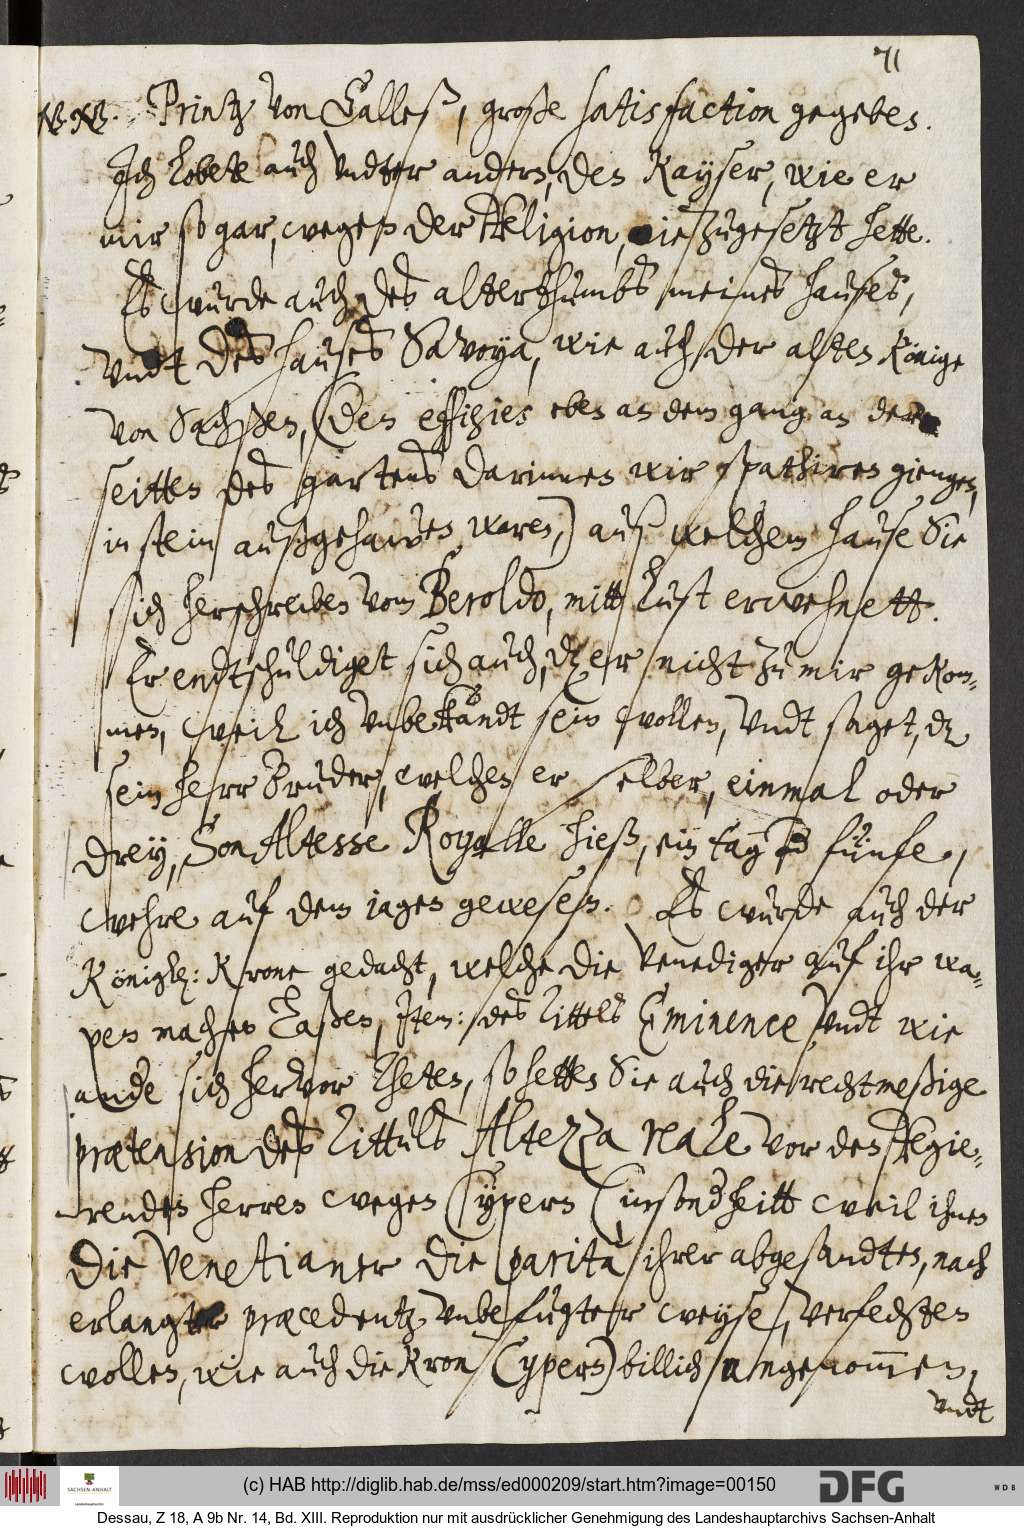 71
NB. NB. Printz von Calles, große satisfaction gegeben.
Ich lobete auch vndter andern, den Kayser, wie er
mir so gar, wegen der Religion, nie zugesetzt hette.
Es wurde auch des alterthumbs meines hauses,
vndt des hauses Savoya, wie auch der alten Könige
von Sachßen, (den effigies eben an dem gang an der
seitten des gartens darinnen wir spatziren giengen,
in stein außgehawen waren,) auß welchem hause Sie
sich herschreiben vom Beroldo, mitt lust erwehnett.
Er endtschuldiget sich auch, dz er nicht zu mir gekom-
men, weil ich vnbekandt sein wollen, vndt saget, dz
sein herr Bruder, welchen er selber, einmal oder
drey, Son Altesse Royalle hieß, ein tag fünfe,
wehre auf dem jagen gewesen. Es wurde auch der
Königl: Krone gedacht, welche die Venediger auf ihr wa-
pen machen laßen, Item: des Tittels Eminence, vndt wie
ande sich hervor theten, so hetten Sie auch die rechtmeßige
prætension des Tittuls Altezza reale vor den Regie-
renden herren wegen Cypern (insonderheitt weil ihnen
die Venetianer die parità ihrer abgesandten, nach
erlangter præcedentz vnbefugter weyse, verfechten
wollen, wie auch die Kron Cypern) billich angenommen,
vndt
(c) HAB http://diglib.hab.de/mss/ed000209/start.htm?image=00150
SACHSEN-ANHALT
DFG
WDB
Dessau, Z 18, A 9b Nr. 14, Bd. XIII. Reproduktion nur mit ausdrücklicher Genehmigung des Landeshauptarchivs Sachsen-Anhalt